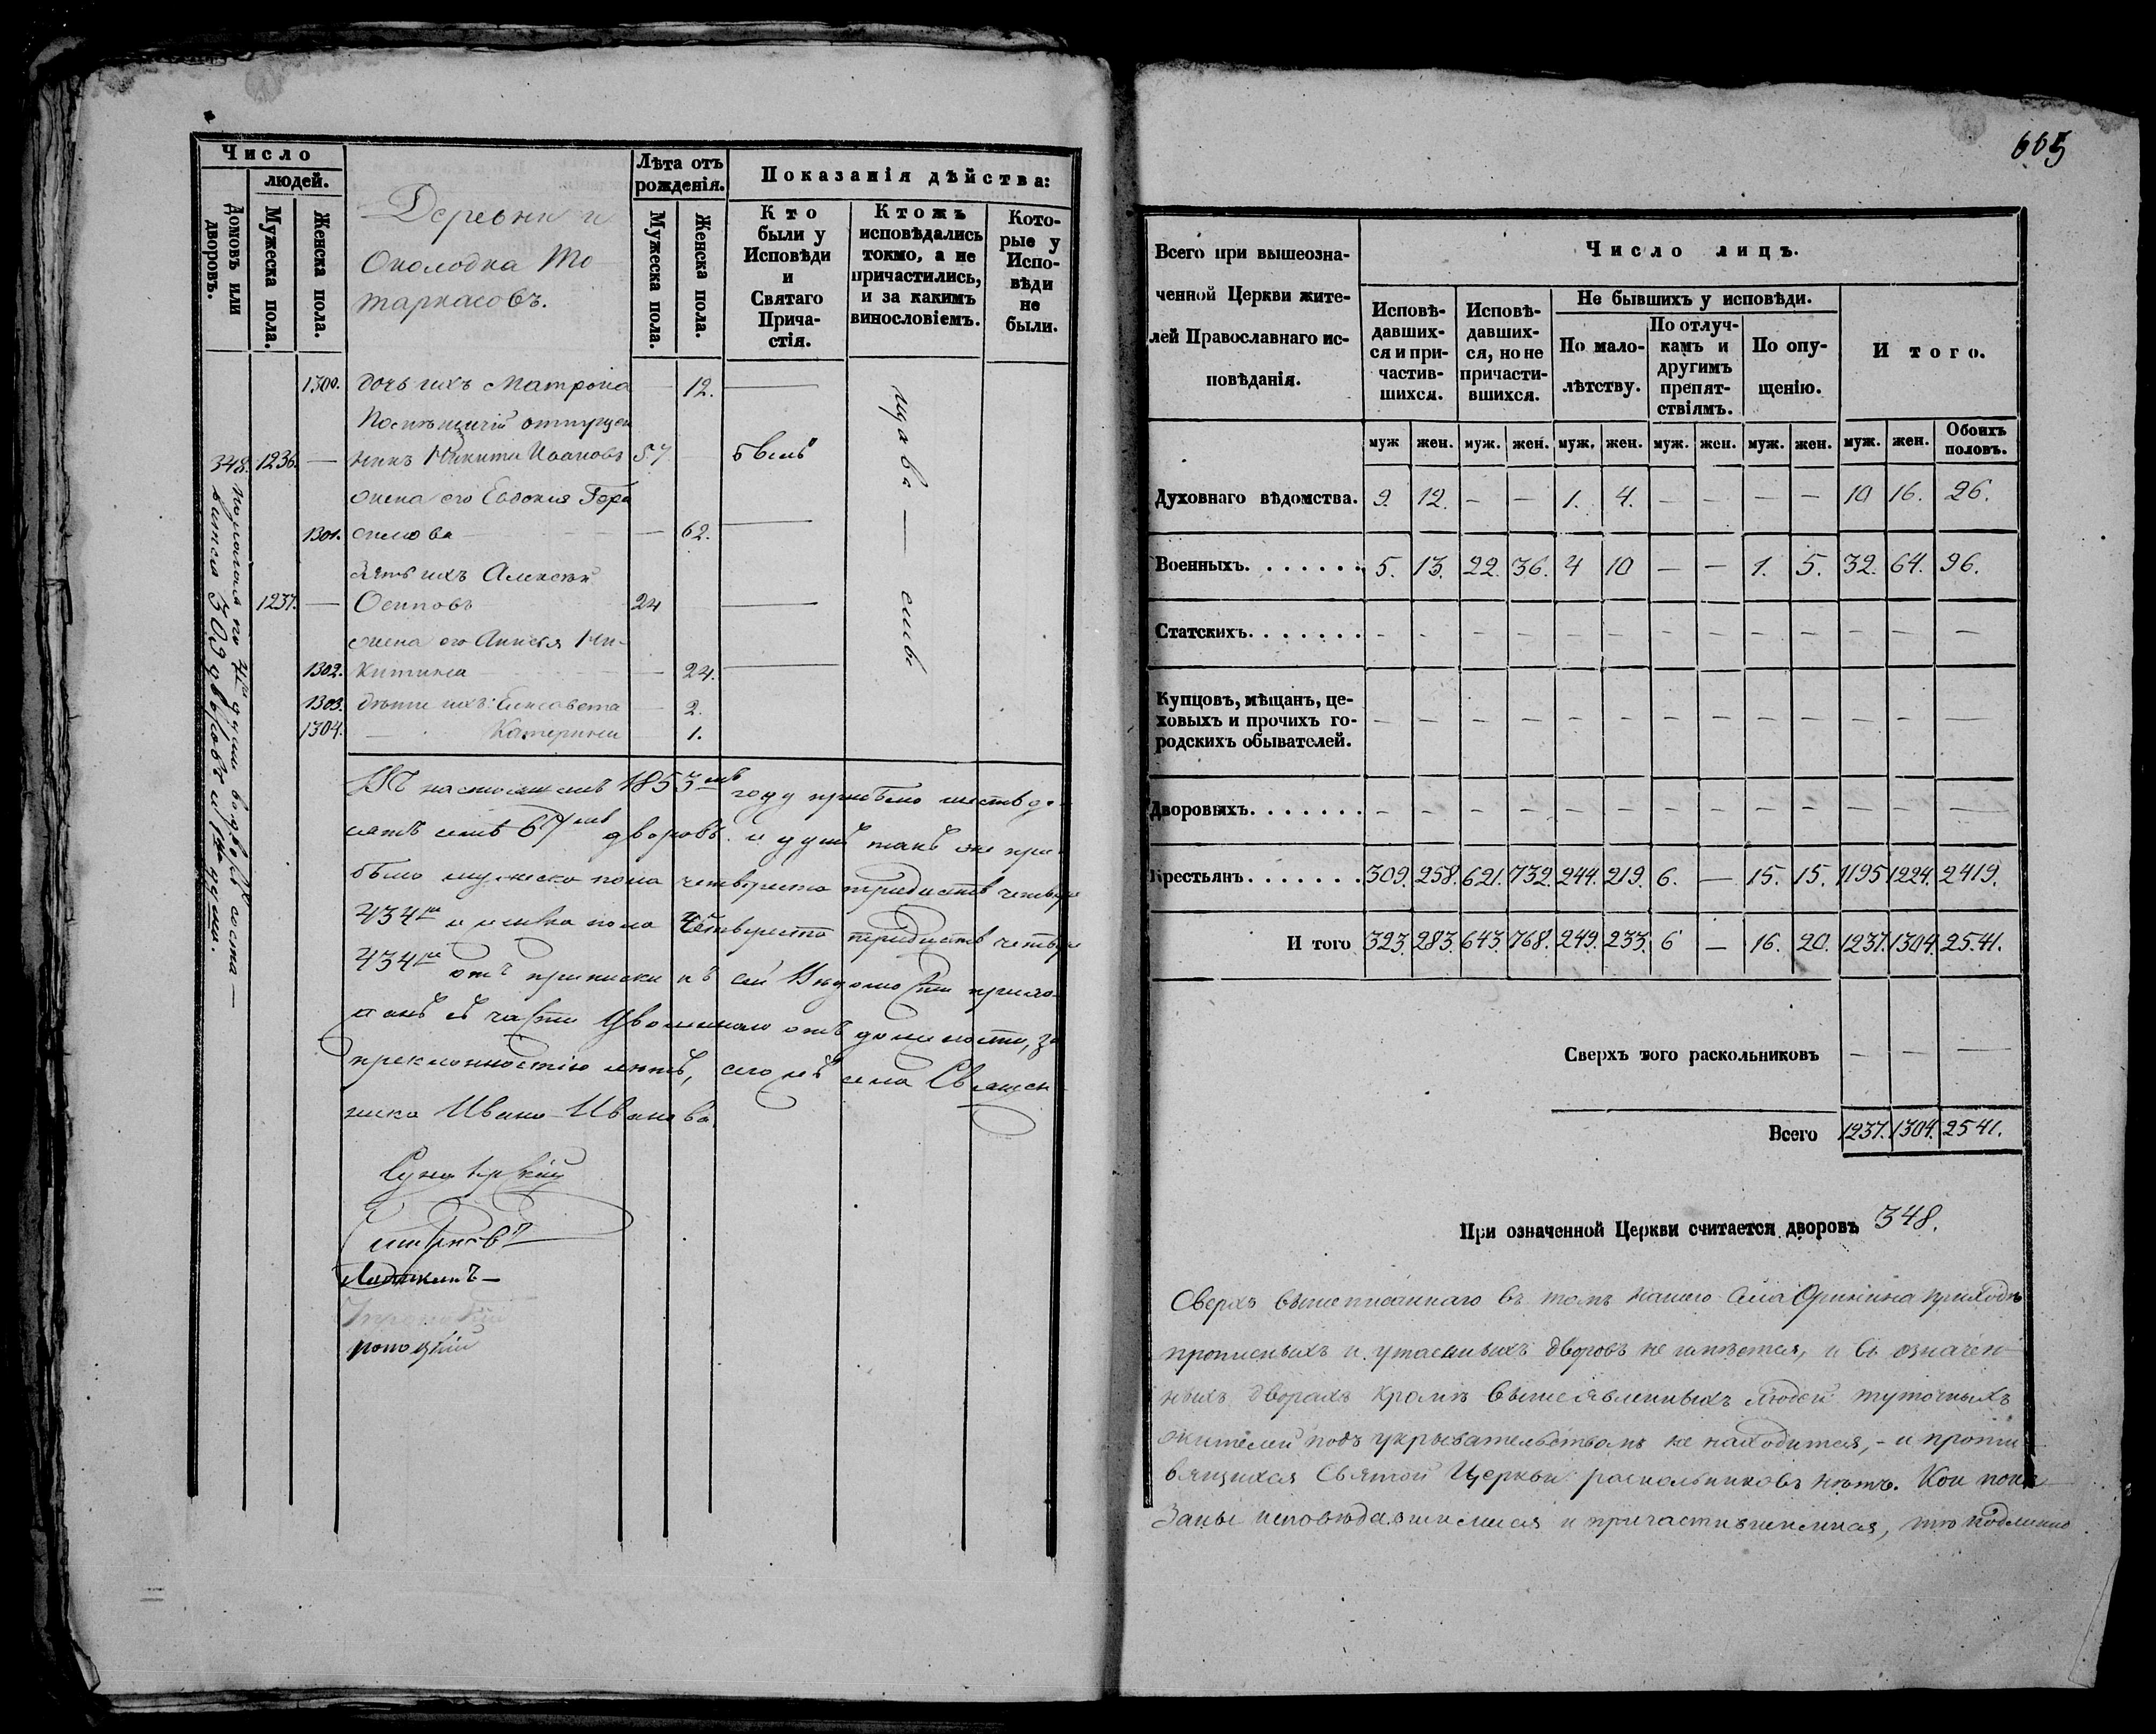 Число
людей.
Домовъ или дворовъ.
Мужеска пола.
Женска пола.
Деревни и
Околодка То
таркасовъ.
Лѣта отъ рожденія.
Мужеска пола.
Женска пола.
Показанія дѣйства:
Кто были у Исповѣди и Святаго Причастія.
Ктожъ исповѣдались токмо, а не причастились, и за какимъ винословіемъ.
Которые у Исповѣди не были.
1300. дочь ихъ Матрона — 12. —
348. 1236. — никъ Никита Ивановъ 57 былъ
жена его Евдокия Гера
1301. симова — 62. —
зять ихъ Алексѣй
1237. — Осиповъ 24 —
жена его Анисья Ни-
1302. китина — 24. —
1303. дѣти ихъ: Елисавета — 2.
1304. — Катерина — 1.
Въ настоящемъ 1853мъ году прибыло шестьде
сятъ семь 67мь дворовъ. и душъ такъ же при
было мужеска пола четвереста тридцать четыре
434ре и женска пола четвереста тридцать четыре
434ре отъ приписки къ сей Вѣдомости прихо
жанъ въ части уволеннаго отъ должности, за
преклонностію лѣтъ, сего жъ села Священ
ника Ивана Иванова.
605
Всего при вышеозначенной Церкви жителей Православнаго исповѣданія.
Число лицъ.
Исповѣдавшихся и причастившихся.
Исповѣдавшихся, но не причастившихся.
Не бывшихъ у исповѣди.
По малолѣтству.
По отлучкамъ и другимъ препятствіямъ.
По опущенію.
Итого.
муж жен. муж. жен. муж. жен. муж. жен. муж. жен. муж. жен. Обоихъ половъ.
Духовнаго вѣдомства. 9. 12. — — 1. 4. — — — — 10 16. 26.
Военныхъ. . . . . . . 5. 13. 22. 36. 4 10 — — 1. 5. 32. 64. 96.
Статскихъ. . . . . . . — — — — — — — — — — — — —
Купцовъ, мѣщанъ, це-
ховыхъ и прочихъ го- — — — — — — — — — — — — —
родскихъ обывателей.
Дворовыхъ. . . . . . . — — — — — — — — — — — — —
Крестьянъ. . . . . . . 309. 258. 621. 732. 244. 219. 6. — 15. 15. 1195 1224. 2419.
И того 323. 283. 643. 768. 249. 233. 6 — 16. 20. 1237. 1304. 2541.
Сверхъ того раскольниковъ — — —
Всего 1237. 1304. 2541.
При означенной Церкви считается дворовъ 348.
Сверхъ вышеписаннаго въ томъ нашего села Оринина приходѣ
прописныхъ и утаенныхъ дворовъ не имѣется, и въ означен-
ныхъ дворахъ кромѣ вышеявленныхъ людей туточныхъ
жителей подъ укрывательствомъ не находится, - и проти
вящихся Святой Церкви раскольниковъ нѣтъ. Кои пока
заны исповѣдавшимися и причастившимися, тѣ подлинно